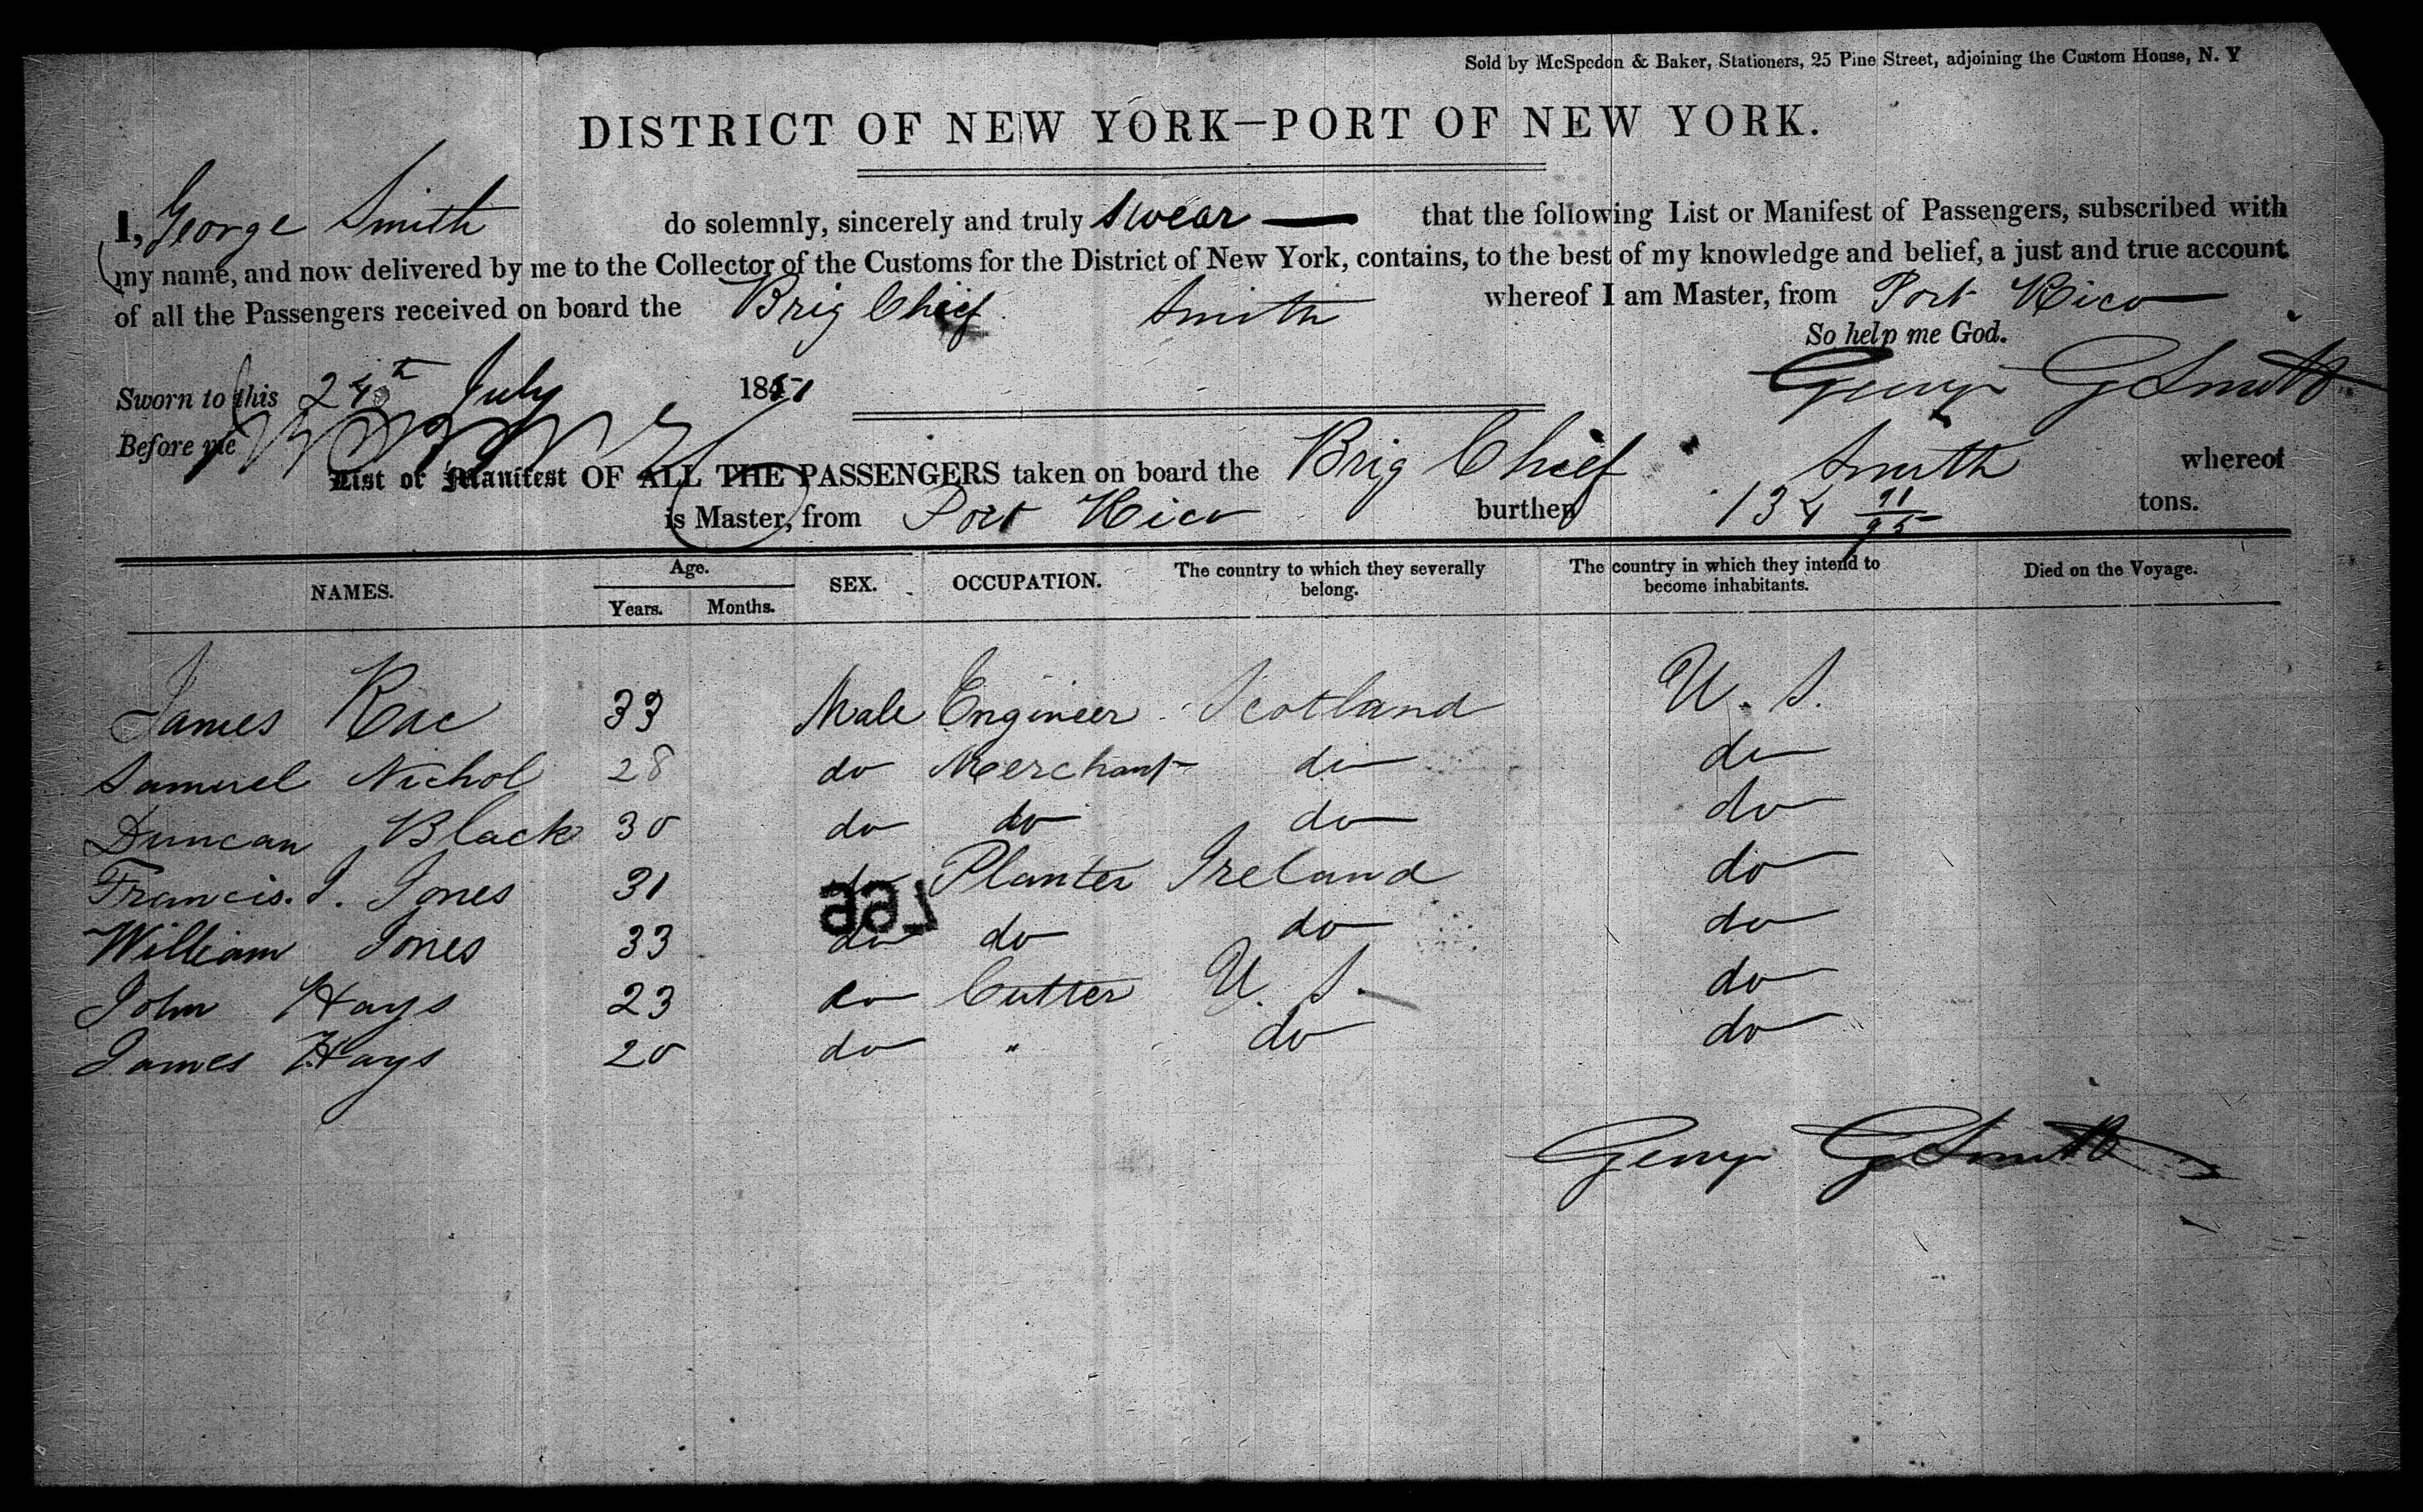 Sold by McSpedon & Baker, Stationers, 25 Pine Street, adjoining the Custom House, N. Y
DISTRICT OF NEW YORK—PORT OF NEW YORK.
I, George Smith do solemnly, sincerely and truly swear — that the following List or Manifest of Passengers, subscribed with
my name, and now delivered by me to the Collector of the Customs for the District of New York, contains, to the best of my knowledge and belief, a just and true account
of all the Passengers received on board the Brig Chief Smith whereof I am Master, from Port Rico
So help me God.
Sworn to this 24th July 1851
George G Smith
Before me
List or Manifest OF ALL THE PASSENGERS taken on board the Brig Chief Smith whereof
is Master, from Port Rico burthen 134 91/95 tons.
NAMES. Age. Years. Months. SEX. OCCUPATION. The country to which they severally belong. The country in which they intend to become inhabitants. Died on the Voyage.
James Rae 33 Male Engineer Scotland U. S.
Samuel Nichol 28 do Merchant do do
Duncan Black 30 do do do do
Francis. J. Jones 31 do Planter Ireland do
William Jones 33 do do do do
John Hays 23 do Cutter U. S. do
James Hays 20 do " do do
George G Smith